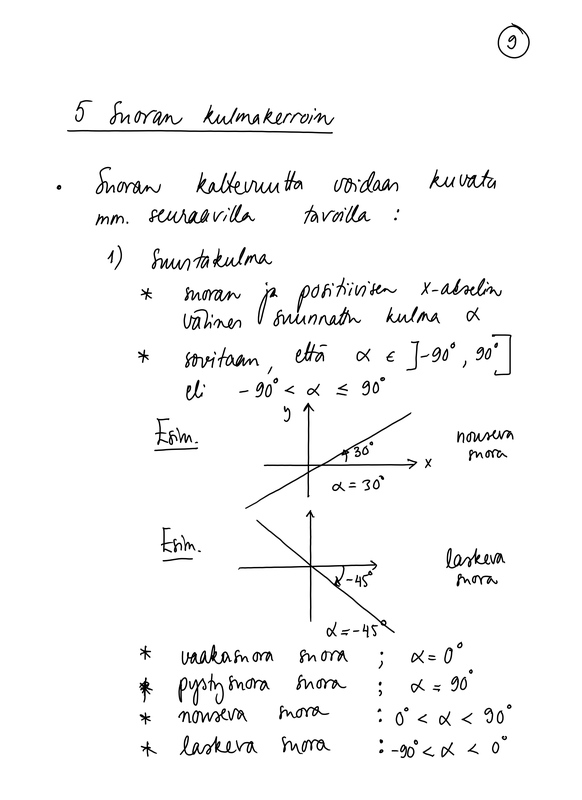 9
5 Suoran kulmakerroin
• Suoran kaltevuutta voidaan kuvata
mm. seuraavilla tavoilla :
1) Suuntakulma
* suoran ja positiivisen x-akselin
välinen suunnattu kulma α
* sovitaan, että α ∈ ]-90°, 90°]
eli -90° < α ≤ 90°
Esim.
y
30°
x
α = 30°
nouseva
suora
Esim.
-45°
α = -45°
laskeva
suora
* vaakasuora suora ; α = 0°
* pystysuora suora ; α = 90°
* nouseva suora : 0° < α < 90°
* laskeva suora : -90° < α < 0°